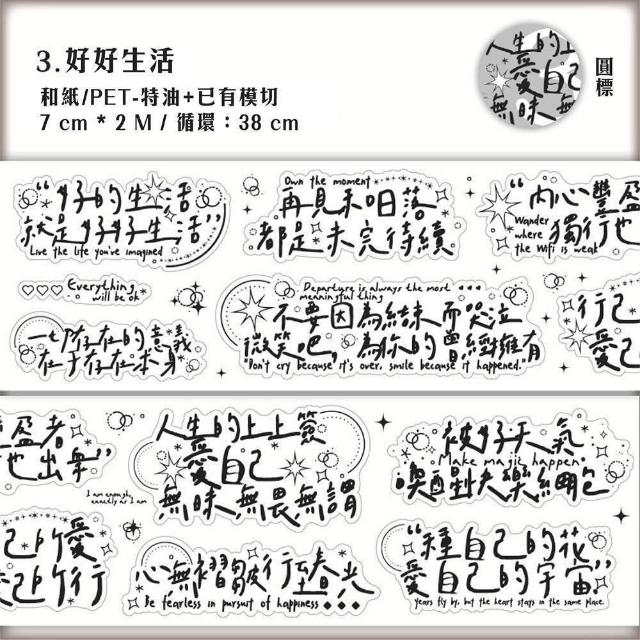 3.好好生活
和紙/PET-特油+已有模切
7 cm * 2 M / 循環：38 cm
圓標
人生的上
愛自己
無昧無
“好的生活
就是好好生活”
Live the life you've imagined
Own the moment
再見未日落
都是未完待續
“內心豐盈
Wander
where
the Wifi is weak
獨行也
Everything
will be ok
一切存在的意義
在于存在本身
Departure is always the most
meaningful thing
不要因為結束而哭泣
微笑吧，為你的曾經擁有
"Don't cry because it's over, smile because it happened."
行己
愛己
盈者
也出眾”
I am enough,
exactly as I am
己所愛
己所行
人生的上上簽
愛自己
無昧無畏無謂
心無褶皺行至春光
Be fearless in pursuit of happiness
被好天氣
Make magic happen
喚醒點快樂細胞
“種自己的花
愛自己的宇宙”
years fly by, but the heart stays in the same place.